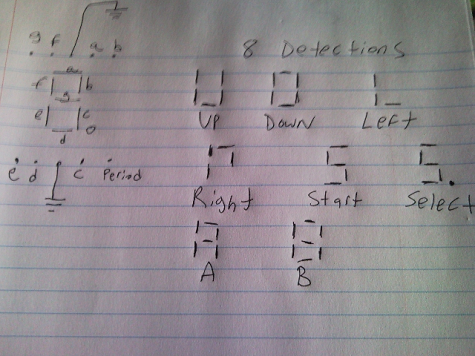 8 Detections
g f a b
a
f b
g
e c
d
UP Down Left
e d c Period
Right Start Select
A B